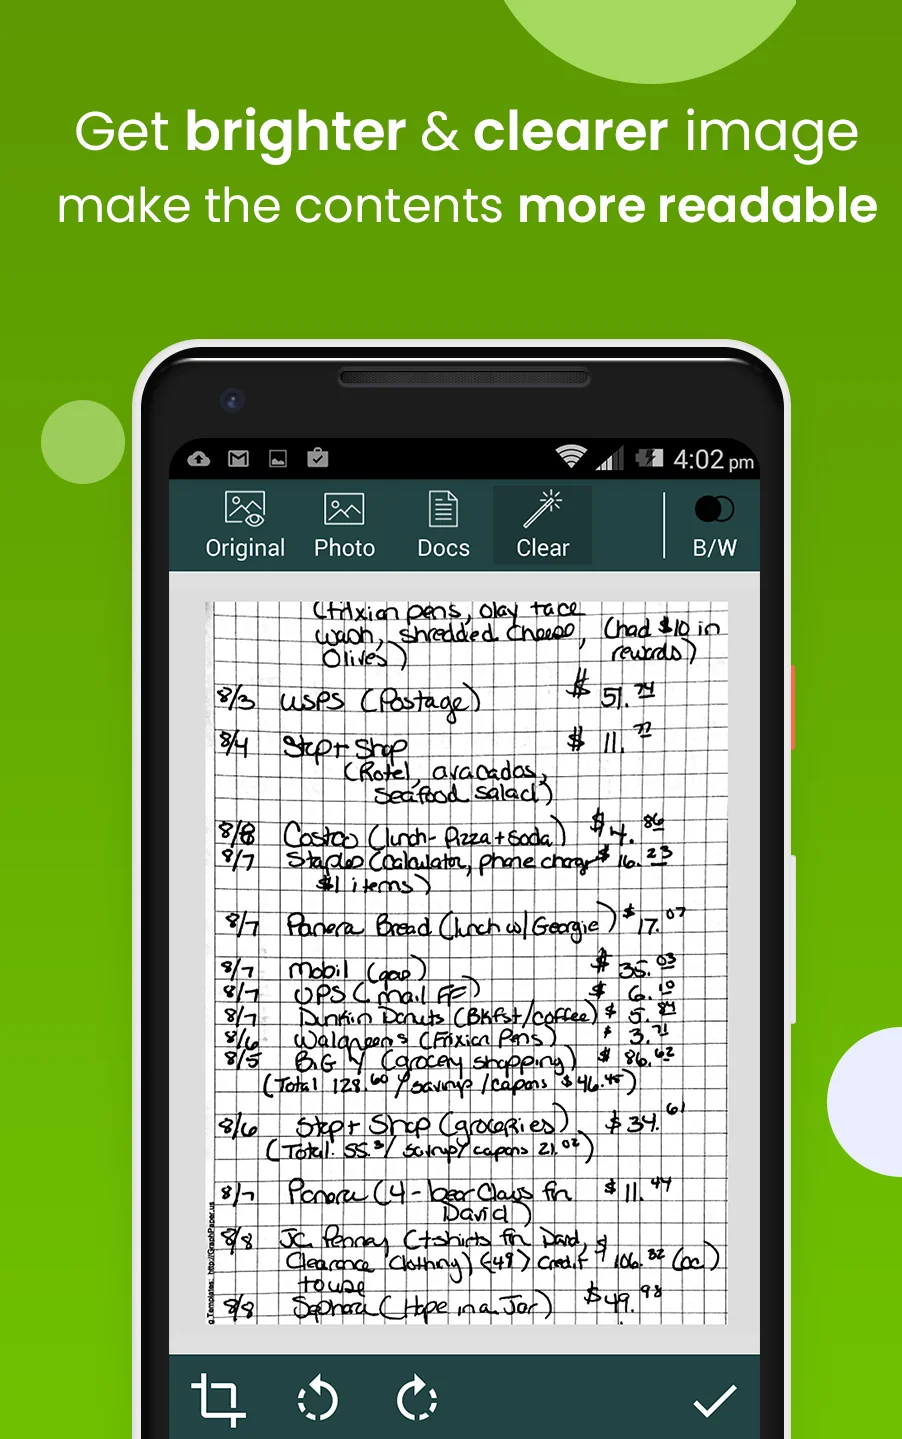 Get brighter & clearer image
make the contents more readable
4:02 pm
Original Photo Docs Clear B/W
(frixion pens, olay face
wash, shredded cheese, (had $10 in
Olives) rewards)
8/3 USPS (Postage) $ 51.74
8/4 Stop + Shop $ 11.77
(Rotel, avacados,
seafood salad)
8/8 Costco (lunch- Pizza + soda) $ 4.86
8/7 Staples (calculator, phone charger $ 16.23
$1 items)
8/7 Panera Bread (lunch w/ Georgie) $ 17.07
8/7 Mobil (gas) $ 35.03
8/7 UPS (mail FF) $ 6.10
8/7 Dunkin Donuts (Bkfst/coffee) $ 5.84
8/6 Walgreens (Frixion Pens) $ 3.71
8/5 BiG Y (grocery shopping) $ 86.62
(Total 128.60 / savings /coupons $46.45)
8/6 Stop + Shop (groceries) $ 34.61
(Total: 55. / savings/ coupons 21.02)
8/7 Panera (4 - bear Claws for $ 11.44
David)
8/8 JC Penney (t-shirts for David, $
Clearance Clothing) (-49) credit 106.82 (cc)
to use
8/8 Sephora (Hope in a Jar) $49.98
Templates: http://GraphPaper.us